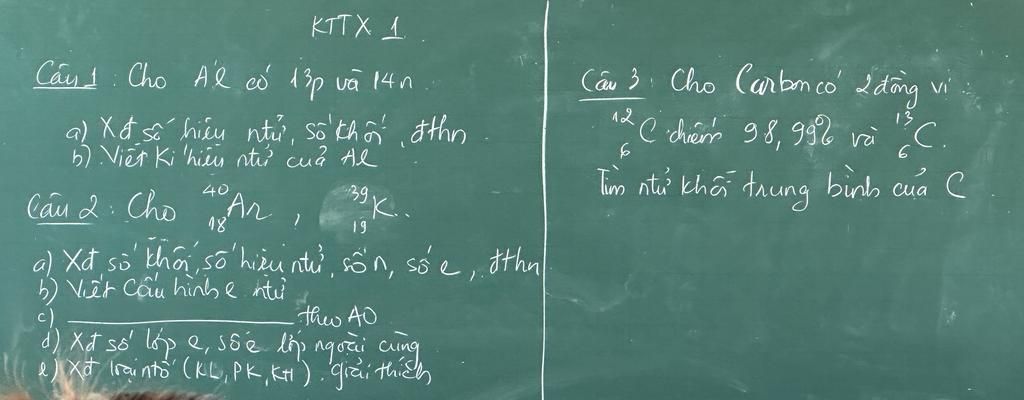 KTTX 1
Câu 1 : Cho Al có 13p và 14n
a) Xđ số hiệu ntử, số khối, đthn
b) Viết kí hiệu ntử của Al
Câu 2 : Cho ⁴⁰₁₈Ar , ³⁹₁₉K..
a) Xđ số khối, số hiệu ntử, số n, số e, đthn
b) Viết cấu hình e ntử
c) ____________ theo AO
d) Xđ số lớp e, số e lớp ngoài cùng
e) Xđ loại ntố (KL, PK, KH). giải thích
Câu 3 : Cho Carbon có 2 đồng vị
¹²₆C chiếm 98,99% và ¹³₆C.
Tìm ntử khối trung bình của C